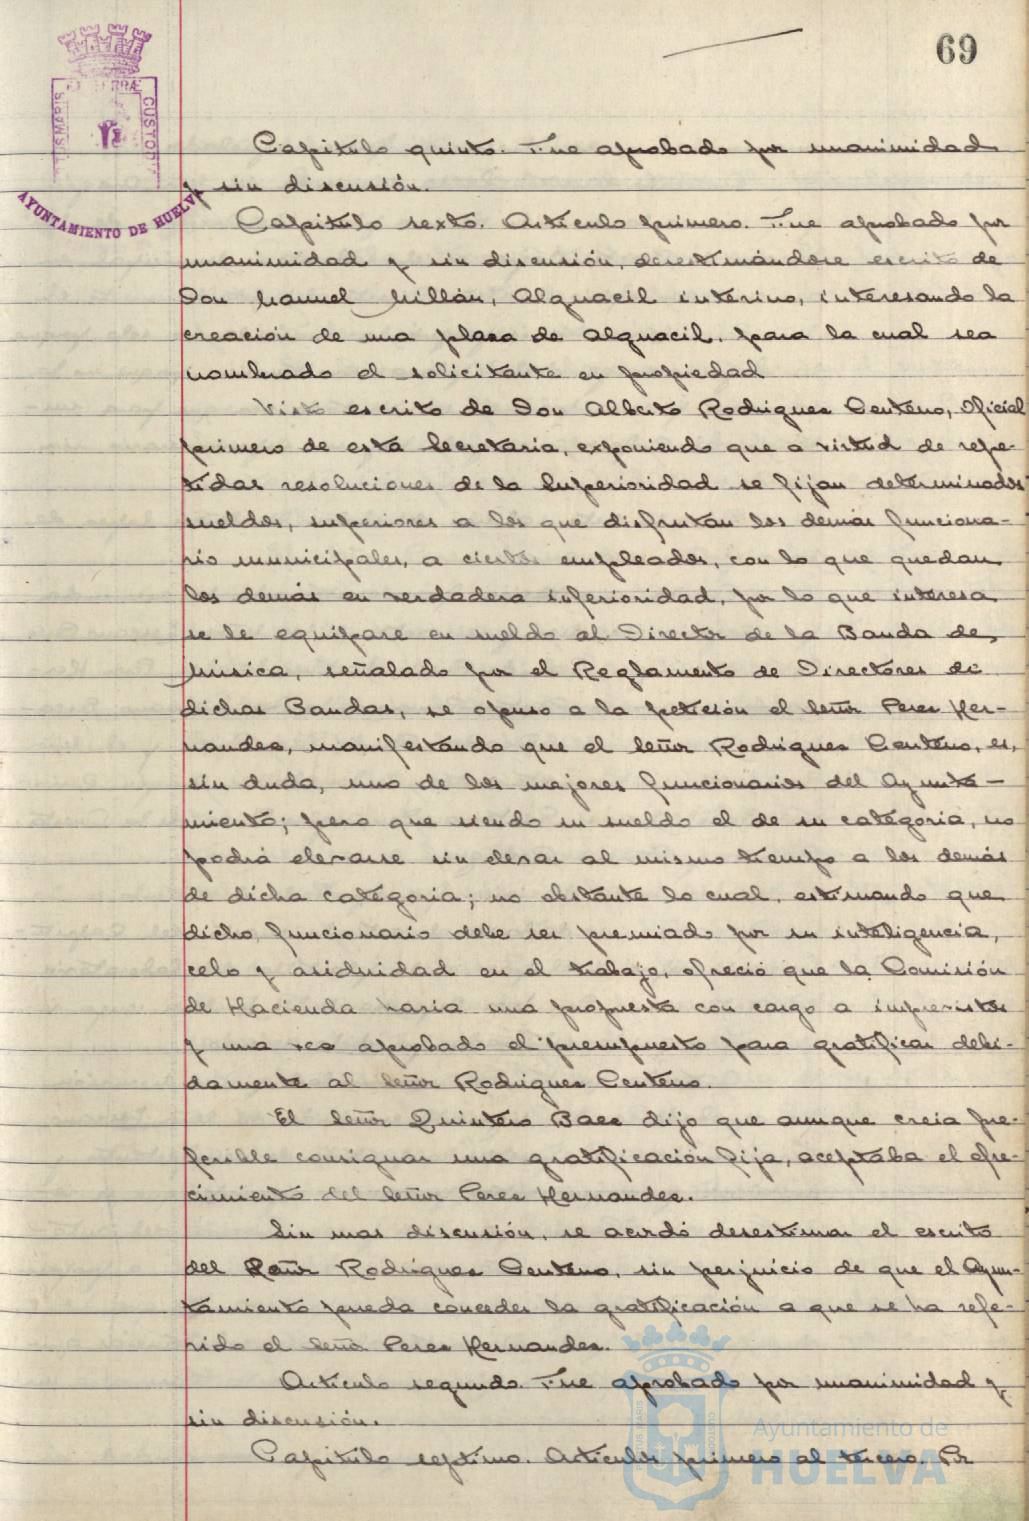 69
PORTUS MARIS ET TERRÆ CUSTODIA
AYUNTAMIENTO DE HUELVA
Capítulo quinto. Fue aprobado por unanimidad
y sin discusión.
Capítulo sexto. Artículo primero. Fue aprobado por
unanimidad y sin discusión, desestimándose escrito de
Don Manuel Millán, Alguacil interino, interesando la
creación de una plaza de Alguacil, para la cual sea
nombrado el solicitante en propiedad
Visto escrito de Don Alberto Rodriguez Centeno, Oficial
primero de esta Secretaria, exponiendo que a virtud de repe-
tidas resoluciones de la Superioridad se fijan determinados
sueldos, superiores a los que disfrutan los demás funciona-
rio municipales, a ciertos empleados, con lo que quedan
los demás en verdadera inferioridad, por lo que interesa
se le equipare en sueldo al Director de la Banda de
Música, señalado por el Reglamento de Directores de
dichas Bandas, se opuso a la petición el señor Perez Her-
nandez, manifestando que el señor Rodriguez Centeno, es,
sin duda, uno de los mejores funcionarios del Ayunta-
miento; pero que siendo su sueldo el de su categoria, no
podrá elevarse sin elevar al mismo tiempo a los demás
de dicha categoria; no obstante lo cual, estimando que
dicho funcionario debe ser premiado por su inteligencia,
celo y asiduidad en el trabajo, ofreció que la Comisión
de Hacienda haria una propuesta con cargo a imprevistos
y una vez aprobado el presupuesto para gratificar debi-
damente al señor Rodriguez Centeno.
El señor Quintero Baez dijo que aunque creia pre-
ferible consignar una gratificación fija, aceptaba el ofre-
cimiento del señor Perez Hernandez.
Sin mas discusión, se acordó desestimar el escrito
del señor Rodriguez Centeno, sin perjuicio de que el Ayun-
tamiento pueda conceder la gratificación a que se ha refe-
rido el señor Perez Hernandez.
Artículo segundo. Fue aprobado por unanimidad y
sin discusión.
Capítulo septimo. Artículos primero al tercero. Por
Ayuntamiento de
HUELVA